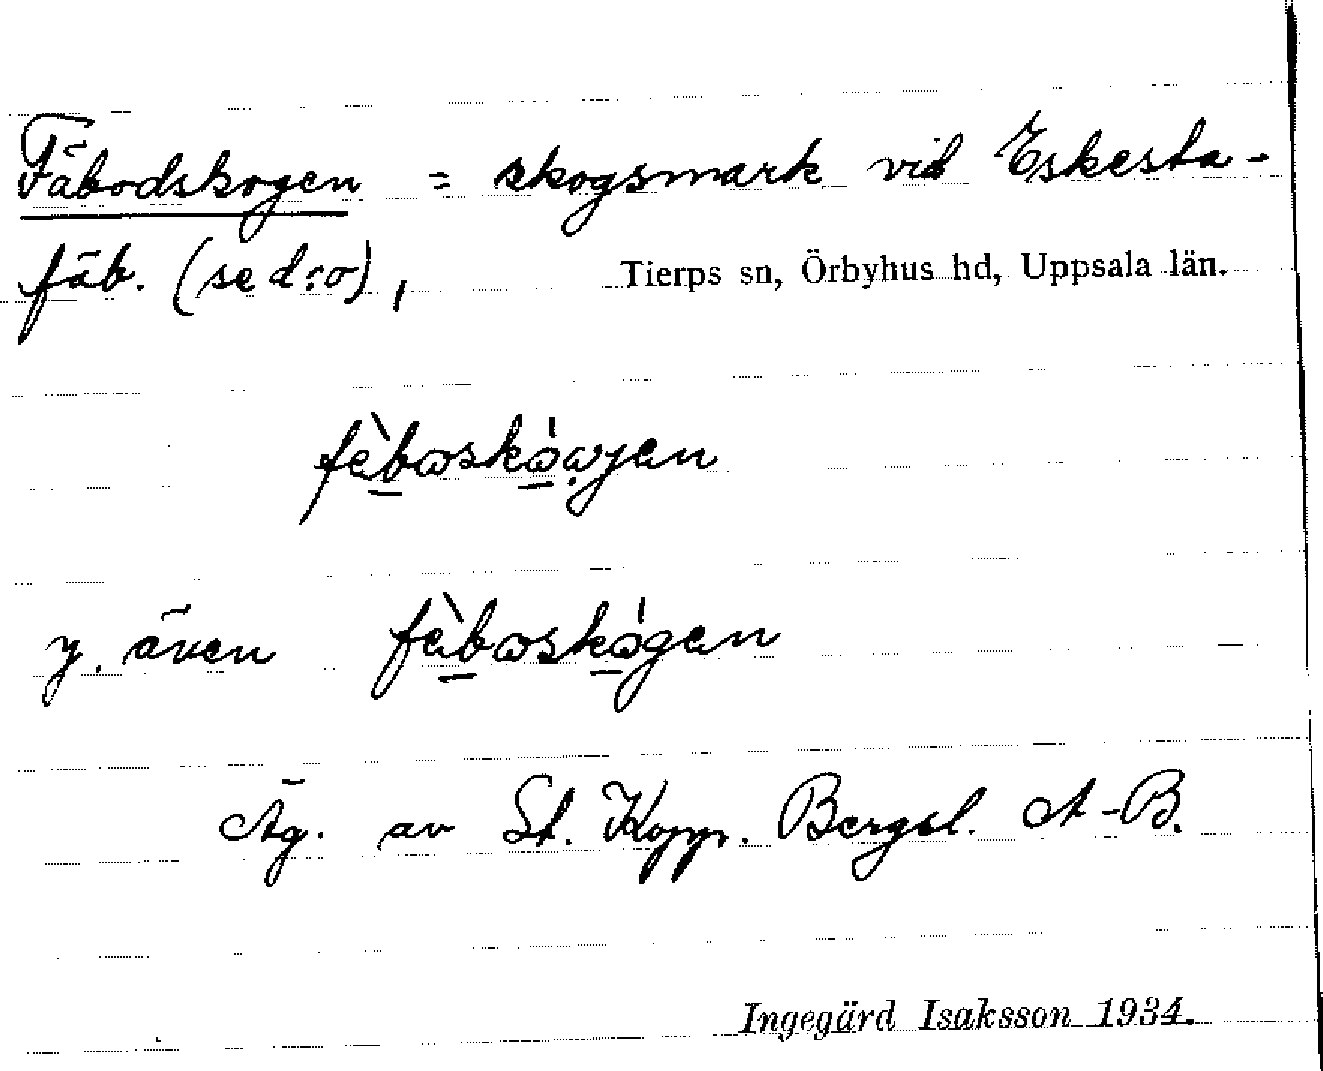 Fäbodskogen = skogsmark vid Eskesta-
fäb. (se d:o), Tierps sn, Örbyhus hd, Uppsala län.
fèboskó̀gen
y. även fèboskógen
Äg. av St. Kopp. Bergsl. A-B.
Ingegärd Isaksson 1934.